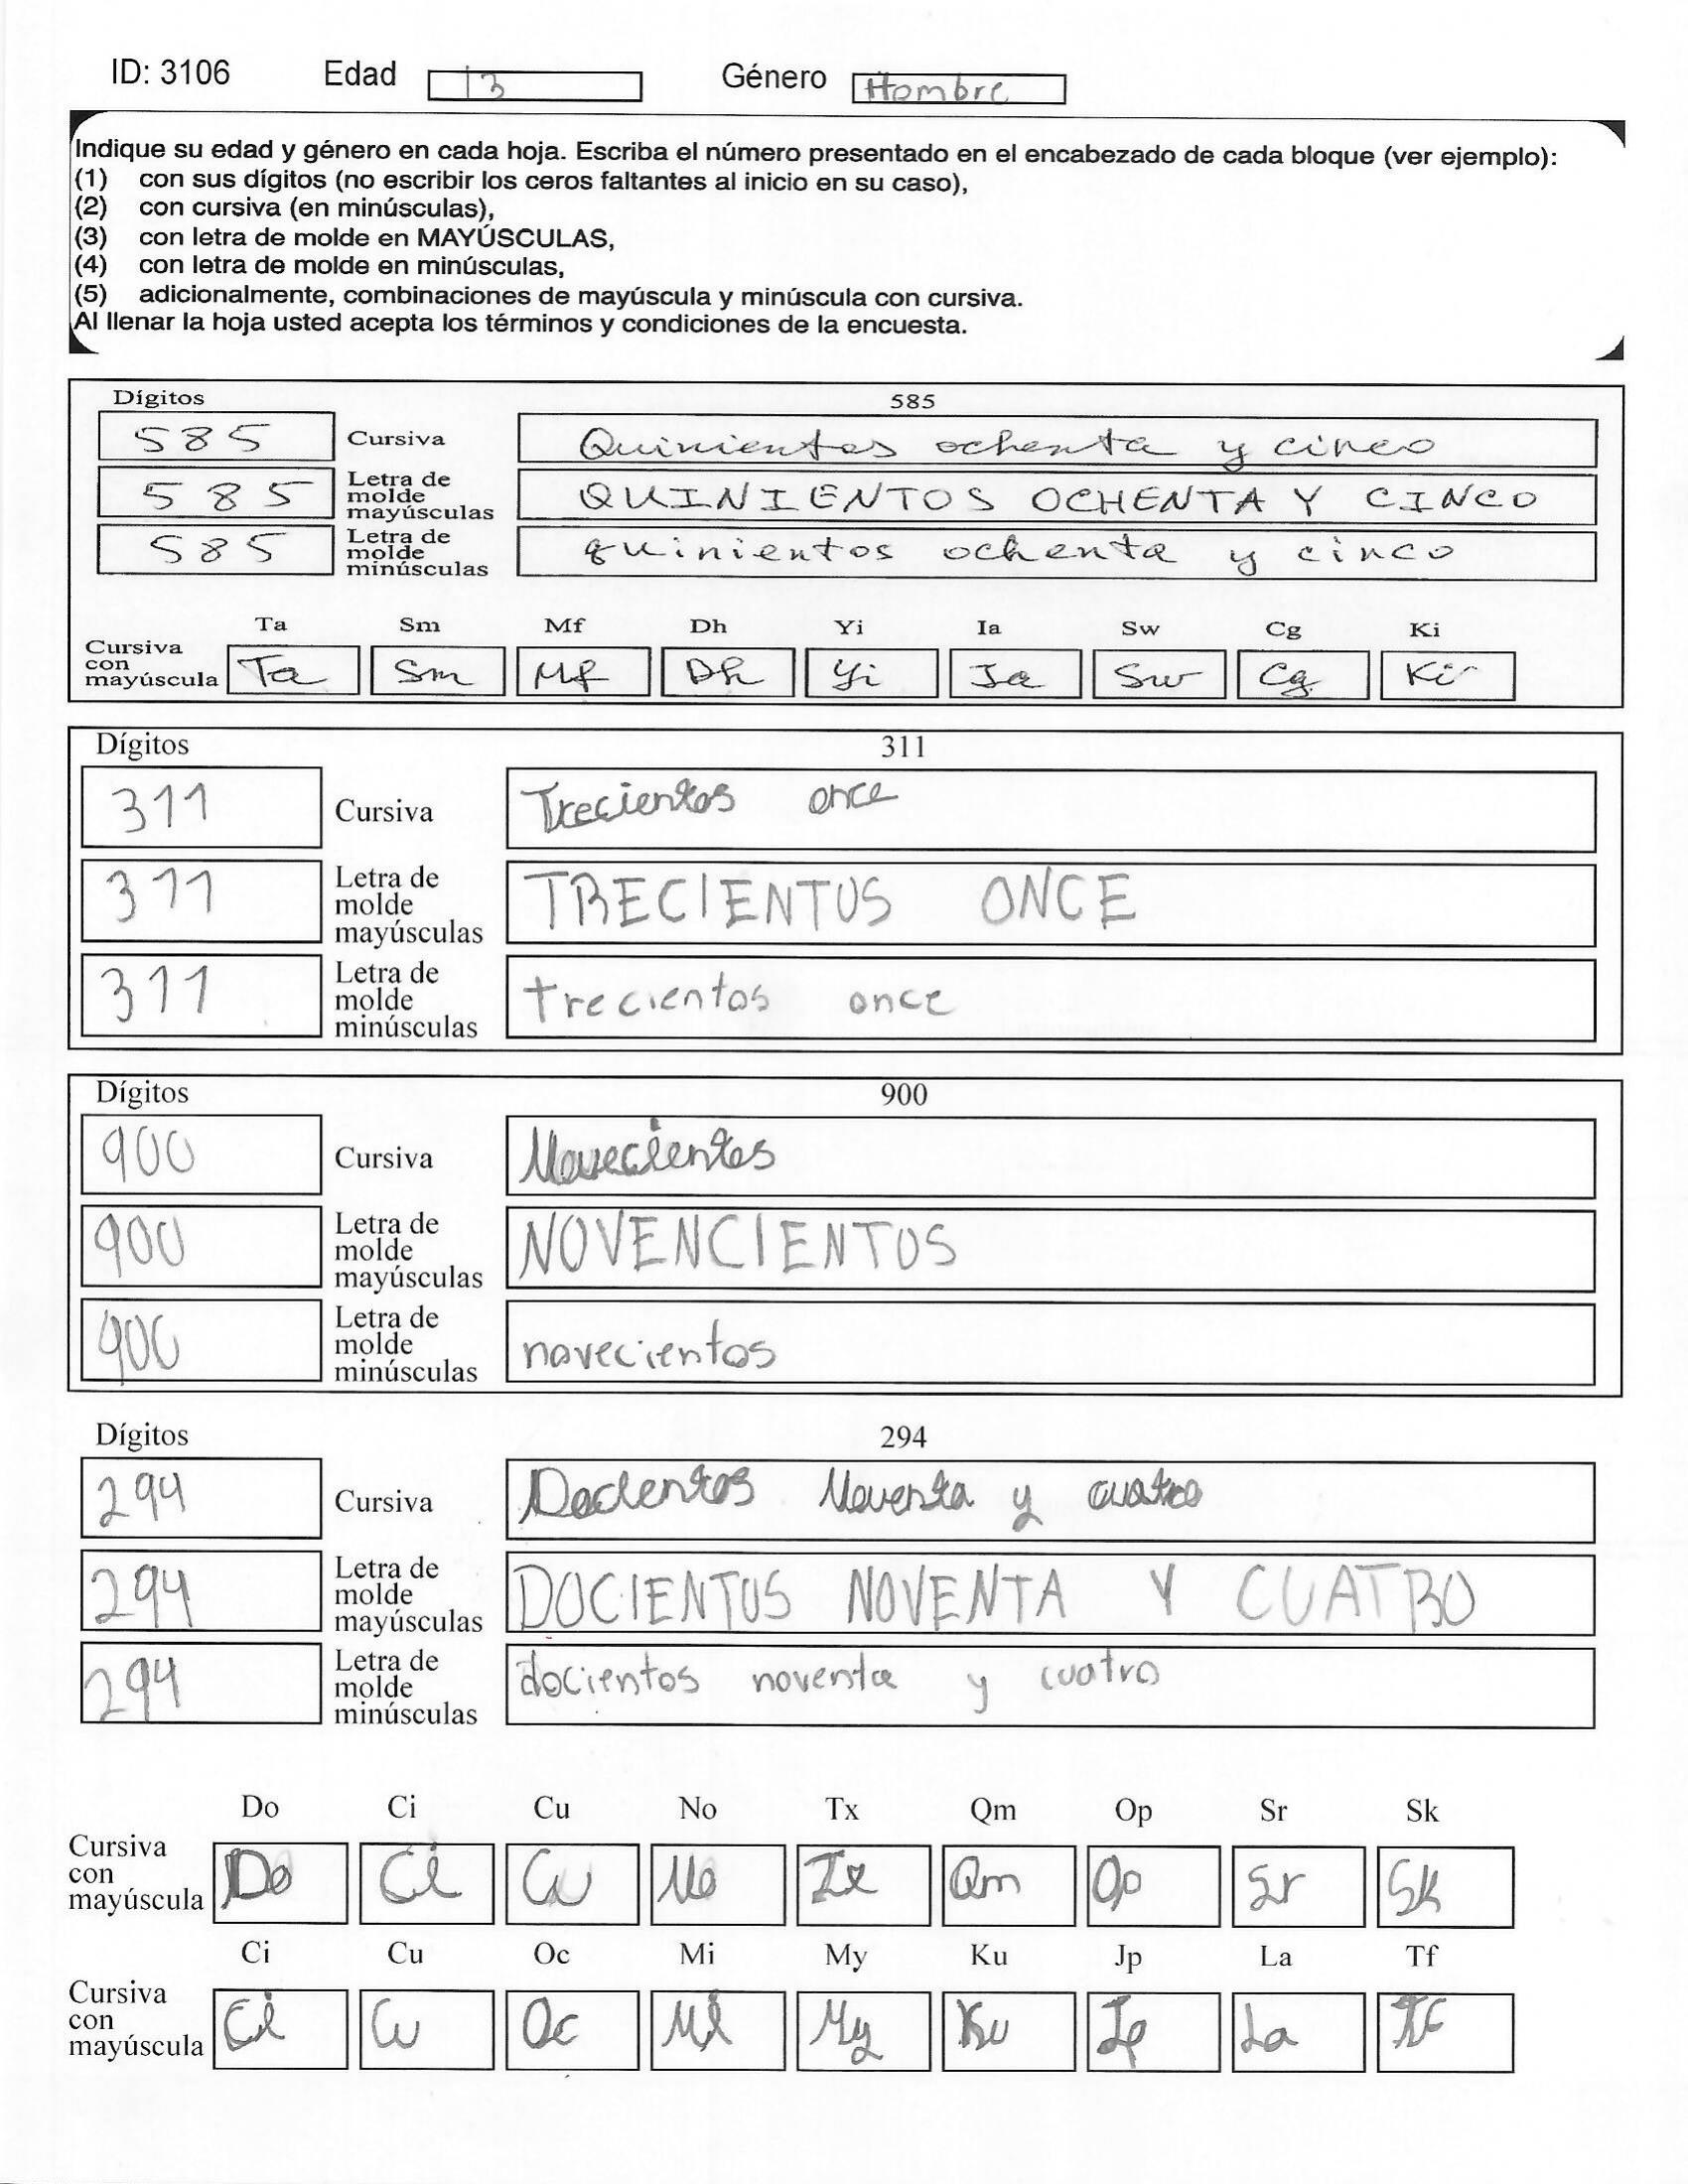 ID: 3106 Edad 13 Género Hombre
Indique su edad y género en cada hoja. Escriba el número presentado en el encabezado de cada bloque (ver ejemplo):
(1) con sus dígitos (no escribir los ceros faltantes al inicio en su caso),
(2) con cursiva (en minúsculas),
(3) con letra de molde en MAYÚSCULAS,
(4) con letra de molde en minúsculas,
(5) adicionalmente, combinaciones de mayúscula y minúscula con cursiva.
Al llenar la hoja usted acepta los términos y condiciones de la encuesta.
Dígitos 585
585 Cursiva Quinientos ochenta y cinco
585 Letra de molde mayúsculas QUINIENTOS OCHENTA Y CINCO
585 Letra de molde minúsculas quinientos ochenta y cinco
Ta Sm Mf Dh Yi Ia Sw Cg Ki
Cursiva con mayúscula Ta Sm Mf Dh Yi Ia Sw Cg Ki
Dígitos 311
311 Cursiva Trecientos once
311 Letra de molde mayúsculas TRECIENTOS ONCE
311 Letra de molde minúsculas trecientos once
Dígitos 900
900 Cursiva Novecientos
900 Letra de molde mayúsculas NOVENCIENTOS
900 Letra de molde minúsculas novecientos
Dígitos 294
294 Cursiva Docientos Noventa y cuatro
294 Letra de molde mayúsculas DOCIENTOS NOVENTA Y CUATRO
294 Letra de molde minúsculas docientos noventa y cuatro
Do Ci Cu No Tx Qm Op Sr Sk
Cursiva con mayúscula Do Ci Cu No Tx Qm Op Sr Sk
Ci Cu Oc Mi My Ku Jp La Tf
Cursiva con mayúscula Ci Cu Oc Mi My Ku Jp La Tf